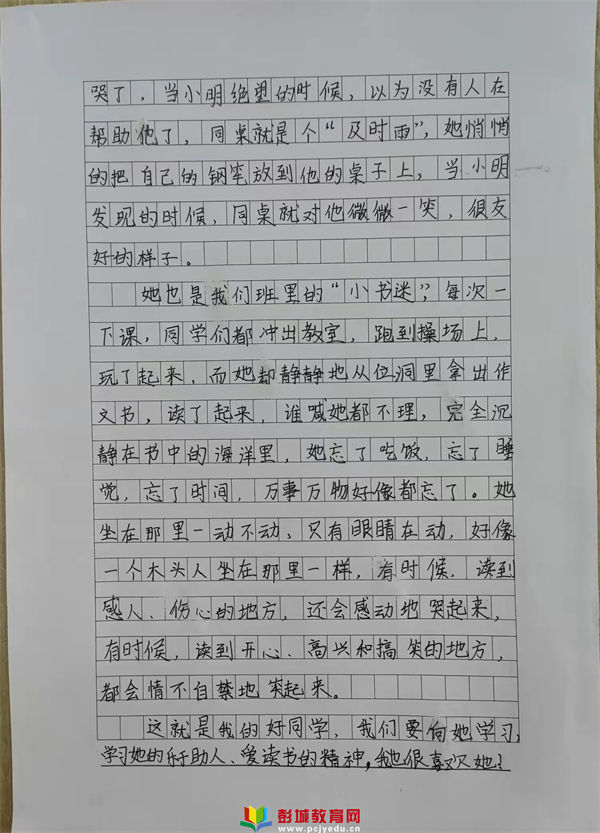 哭了，当小明绝望的时候，以为没有人在
帮助他了，同桌就是个“及时雨”，她悄悄
的把自己的钢笔放到他的桌子上，当小明
发现的时候，同桌就对他微微一笑，很友
好的样子。
她也是我们班里的“小书迷”，每次一
下课，同学们都冲出教室，跑到操场上，
玩了起来，而她却静静地从位洞里拿出作
文书，读了起来，谁喊她都不理，完全沉
静在书中的海洋里，她忘了吃饭，忘了睡
觉，忘了时间，万事万物好像都忘了。她
坐在那里一动不动、只有眼睛在动，好像
一个木头人坐在那里一样，有时候，读到
感人、伤心的地方，还会感动地哭起来，
有时候，读到开心、高兴和搞笑的地方，
都会情不自禁地笑起来。
这就是我的好同学，我们要向她学习，
学习她的乐于助人、爱读书的精神，我也很喜欢她！
彭城教育网
www.pcjyedu.cn